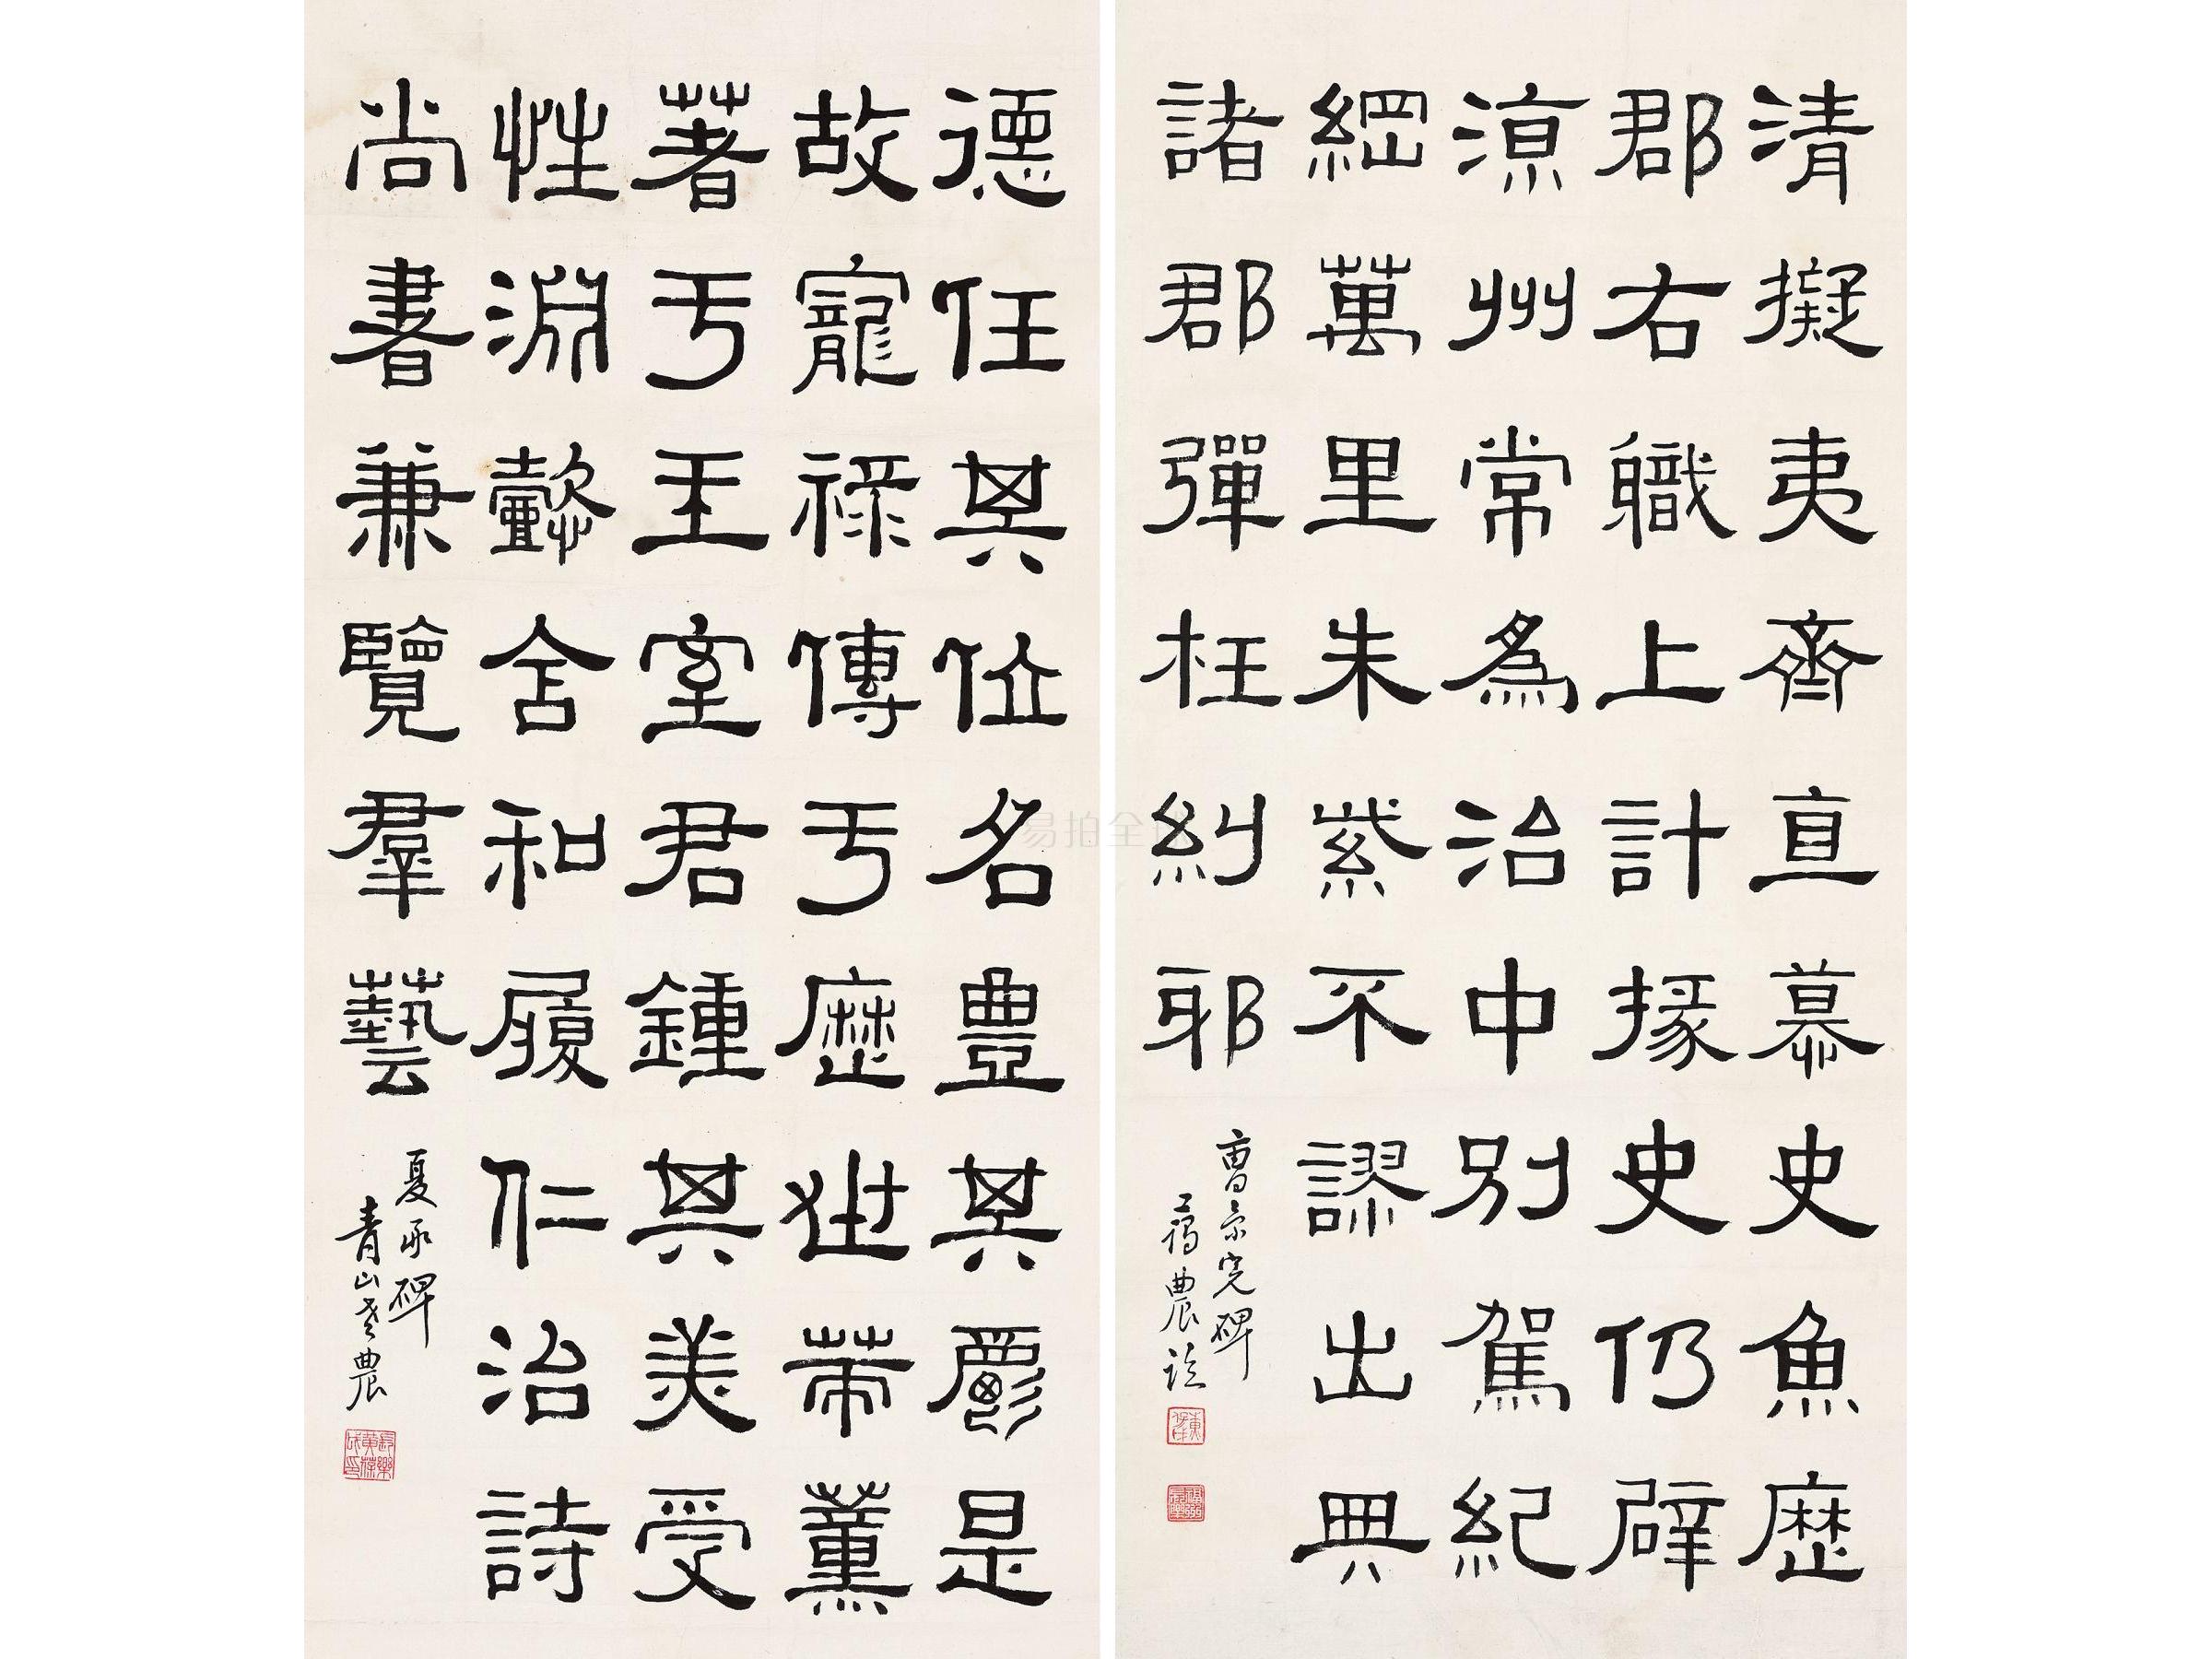 清擬夷齊直慕史魚歷
郡右職上計掾史仍辟
涼州常為治中別駕紀
綱萬里朱紫不謬出典
諸郡彈枉糾邪
曹景完碑
藹農臨
德任其位名豐其爵是
故寵祿傳于歷世策薰
著于王室君鍾其美受
性淵懿含和履仁治詩
尚書兼覽羣藝
夏承碑
青山老農
長樂黃葆戉印
易拍全球